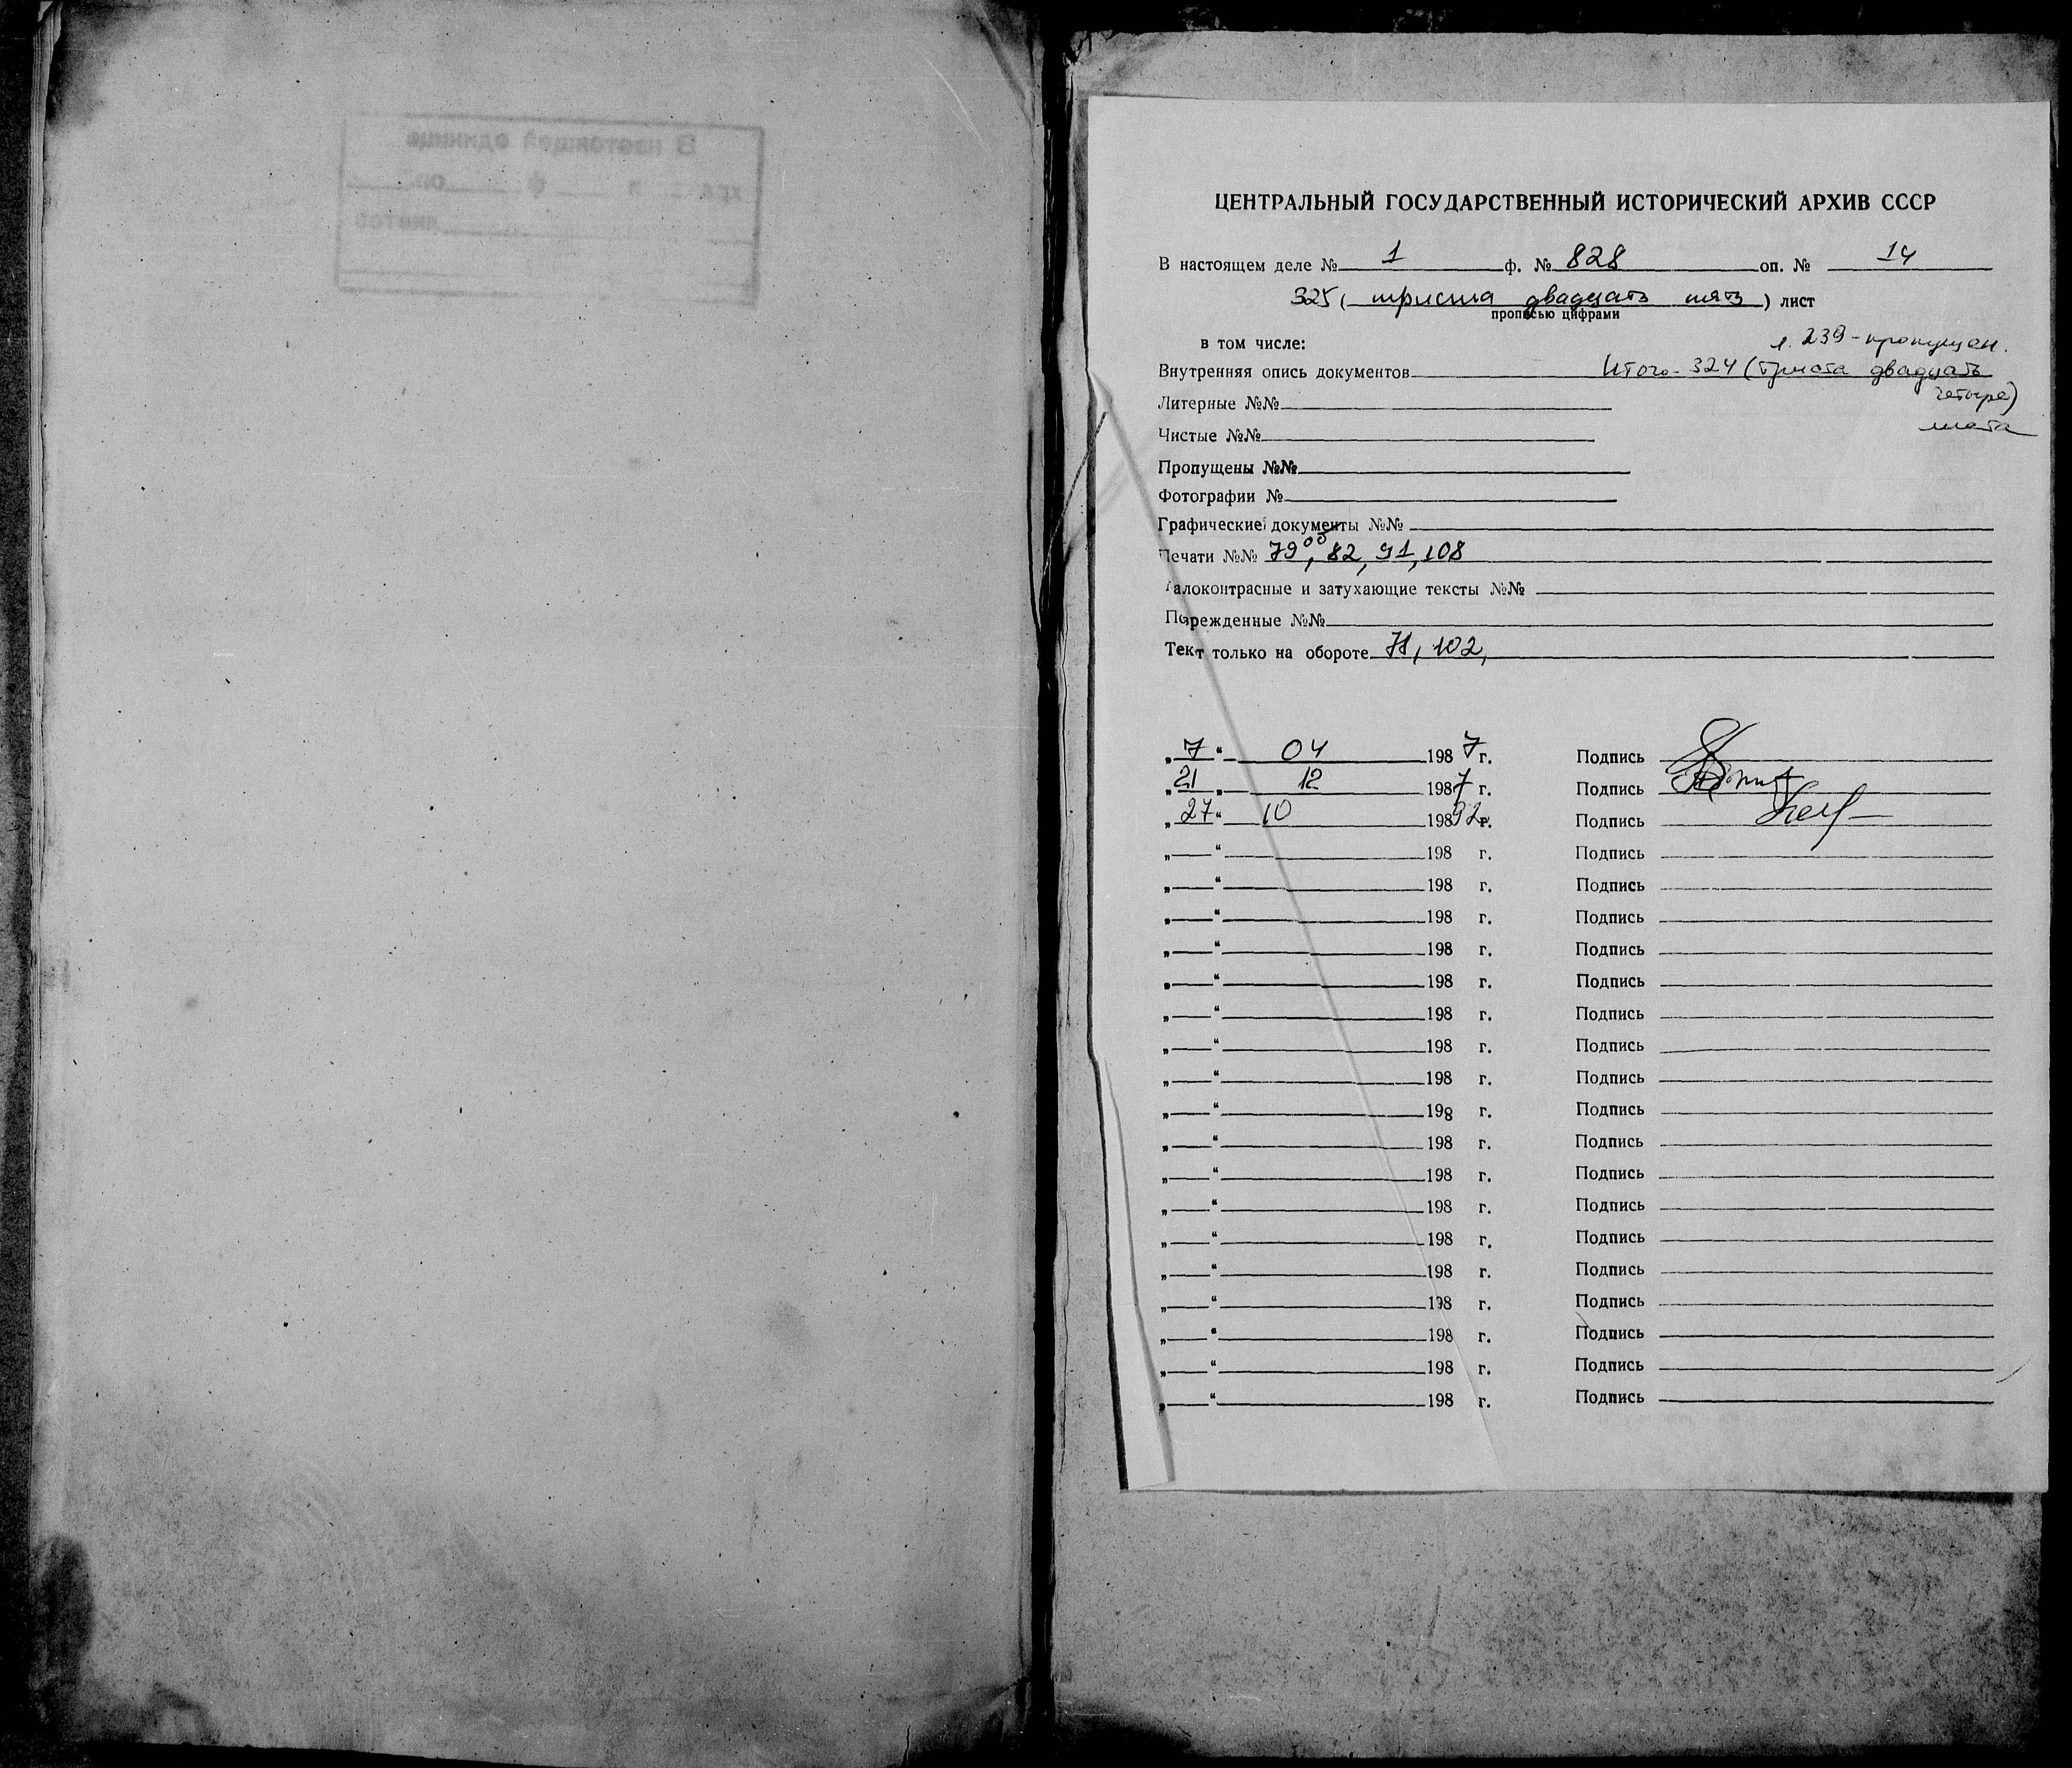 ЦЕНТРАЛЬНЫЙ ГОСУДАРСТВЕННЫЙ ИСТОРИЧЕСКИЙ АРХИВ СССР
В настоящем деле № 1 ф. № 828 оп. № 14
325 ( триста двадцать пять ) лист
прописью цифрами
в том числе:
л. 239 - пропущен.
Внутренняя опись документов Итого - 324 (триста двадцать
четыре)
листа
Литерные №№
Чистые №№
Пропущены №№
Фотографии №
Графические документы №№
Печати №№ 79об, 82, 91, 108
алоконтрасные и затухающие тексты №№
Поврежденные №№
Текст только на обороте 71, 102,
„7“ 04 1987 г. Подпись
„21„ 12 1987 г. Подпись
„27“ 10 19892 г. Подпись
„ “ 198 г. Подпись
„ “ 198 г. Подпись
„ “ 198 г. Подпись
„ “ 198 г. Подпись
„ “ 198 г. Подпись
„ “ 198 г. Подпись
„ “ 198 г. Подпись
„ “ 198 г. Подпись
„ “ 198 г. Подпись
„ “ 198 г. Подпись
„ “ 198 г. Подпись
„ “ 198 г. Подпись
„ “ 198 г. Подпись
„ “ 198 г. Подпись
„ “ 198 г. Подпись
„ “ 198 г. Подпись
„ “ 198 г. Подпись
„ “ 198 г. Подпись